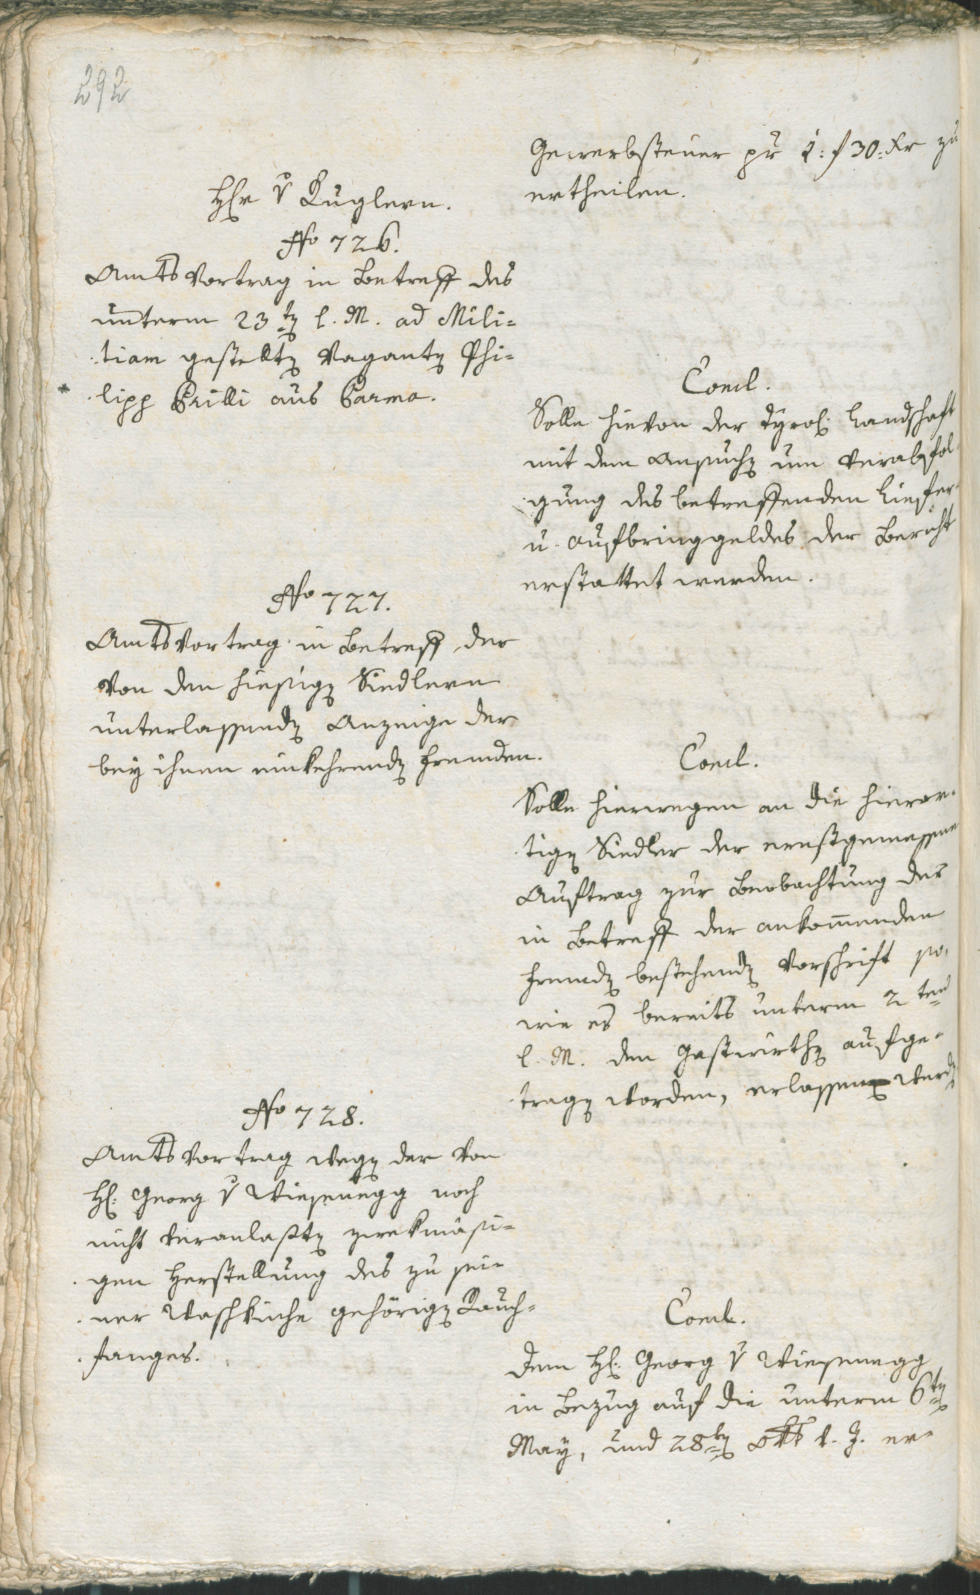 292
Gewerbsteuer pr 1: f 30: Xr zu
ertheilen.
Hr v Kuglern.
No 726.
Amtsvortrag in Betreff des
unterm 23ten l. M. ad Mili=
tiam gestellten Vaganten Phi=
lipp Brilli aus Parma.
Concl.
Solle hievon der tyrol: Landschaft
mit dem Ansuchen um Verabfol=
gung des betreffenden Liefer=
u. Aufbringgeldes der Bericht
erstattet werden.
No 727.
Amtsvortrag in Betreff der
von den hiesigen Siedlern
unterlassenden Anzeige der
bey ihnen einkehrenden Fremden.
Concl.
Solle hierwegen an die hieror=
tigen Siedler der ernstgemessene
Auftrag zur Beobachtung der
in Betreff der ankommenden
Fremden bestehenden Vorschrift so,
wie es bereits unterm 2ten
l. M. den Gastwirthen aufge=
tragen worden, erlassen werden
No 728.
Amtsvortrag wegen der von
H: Georg v Wiesenegg noch
nicht veranlaßten zwekmäsi=
gen Herstellung des zu sei=
ner Waschküche gehörigen Rauch=
fanges.
Concl.
Dem H: Georg v Wiesenegg
in Bezug auf die unterm 6ten
May, und 28ten 8br l. J. er=